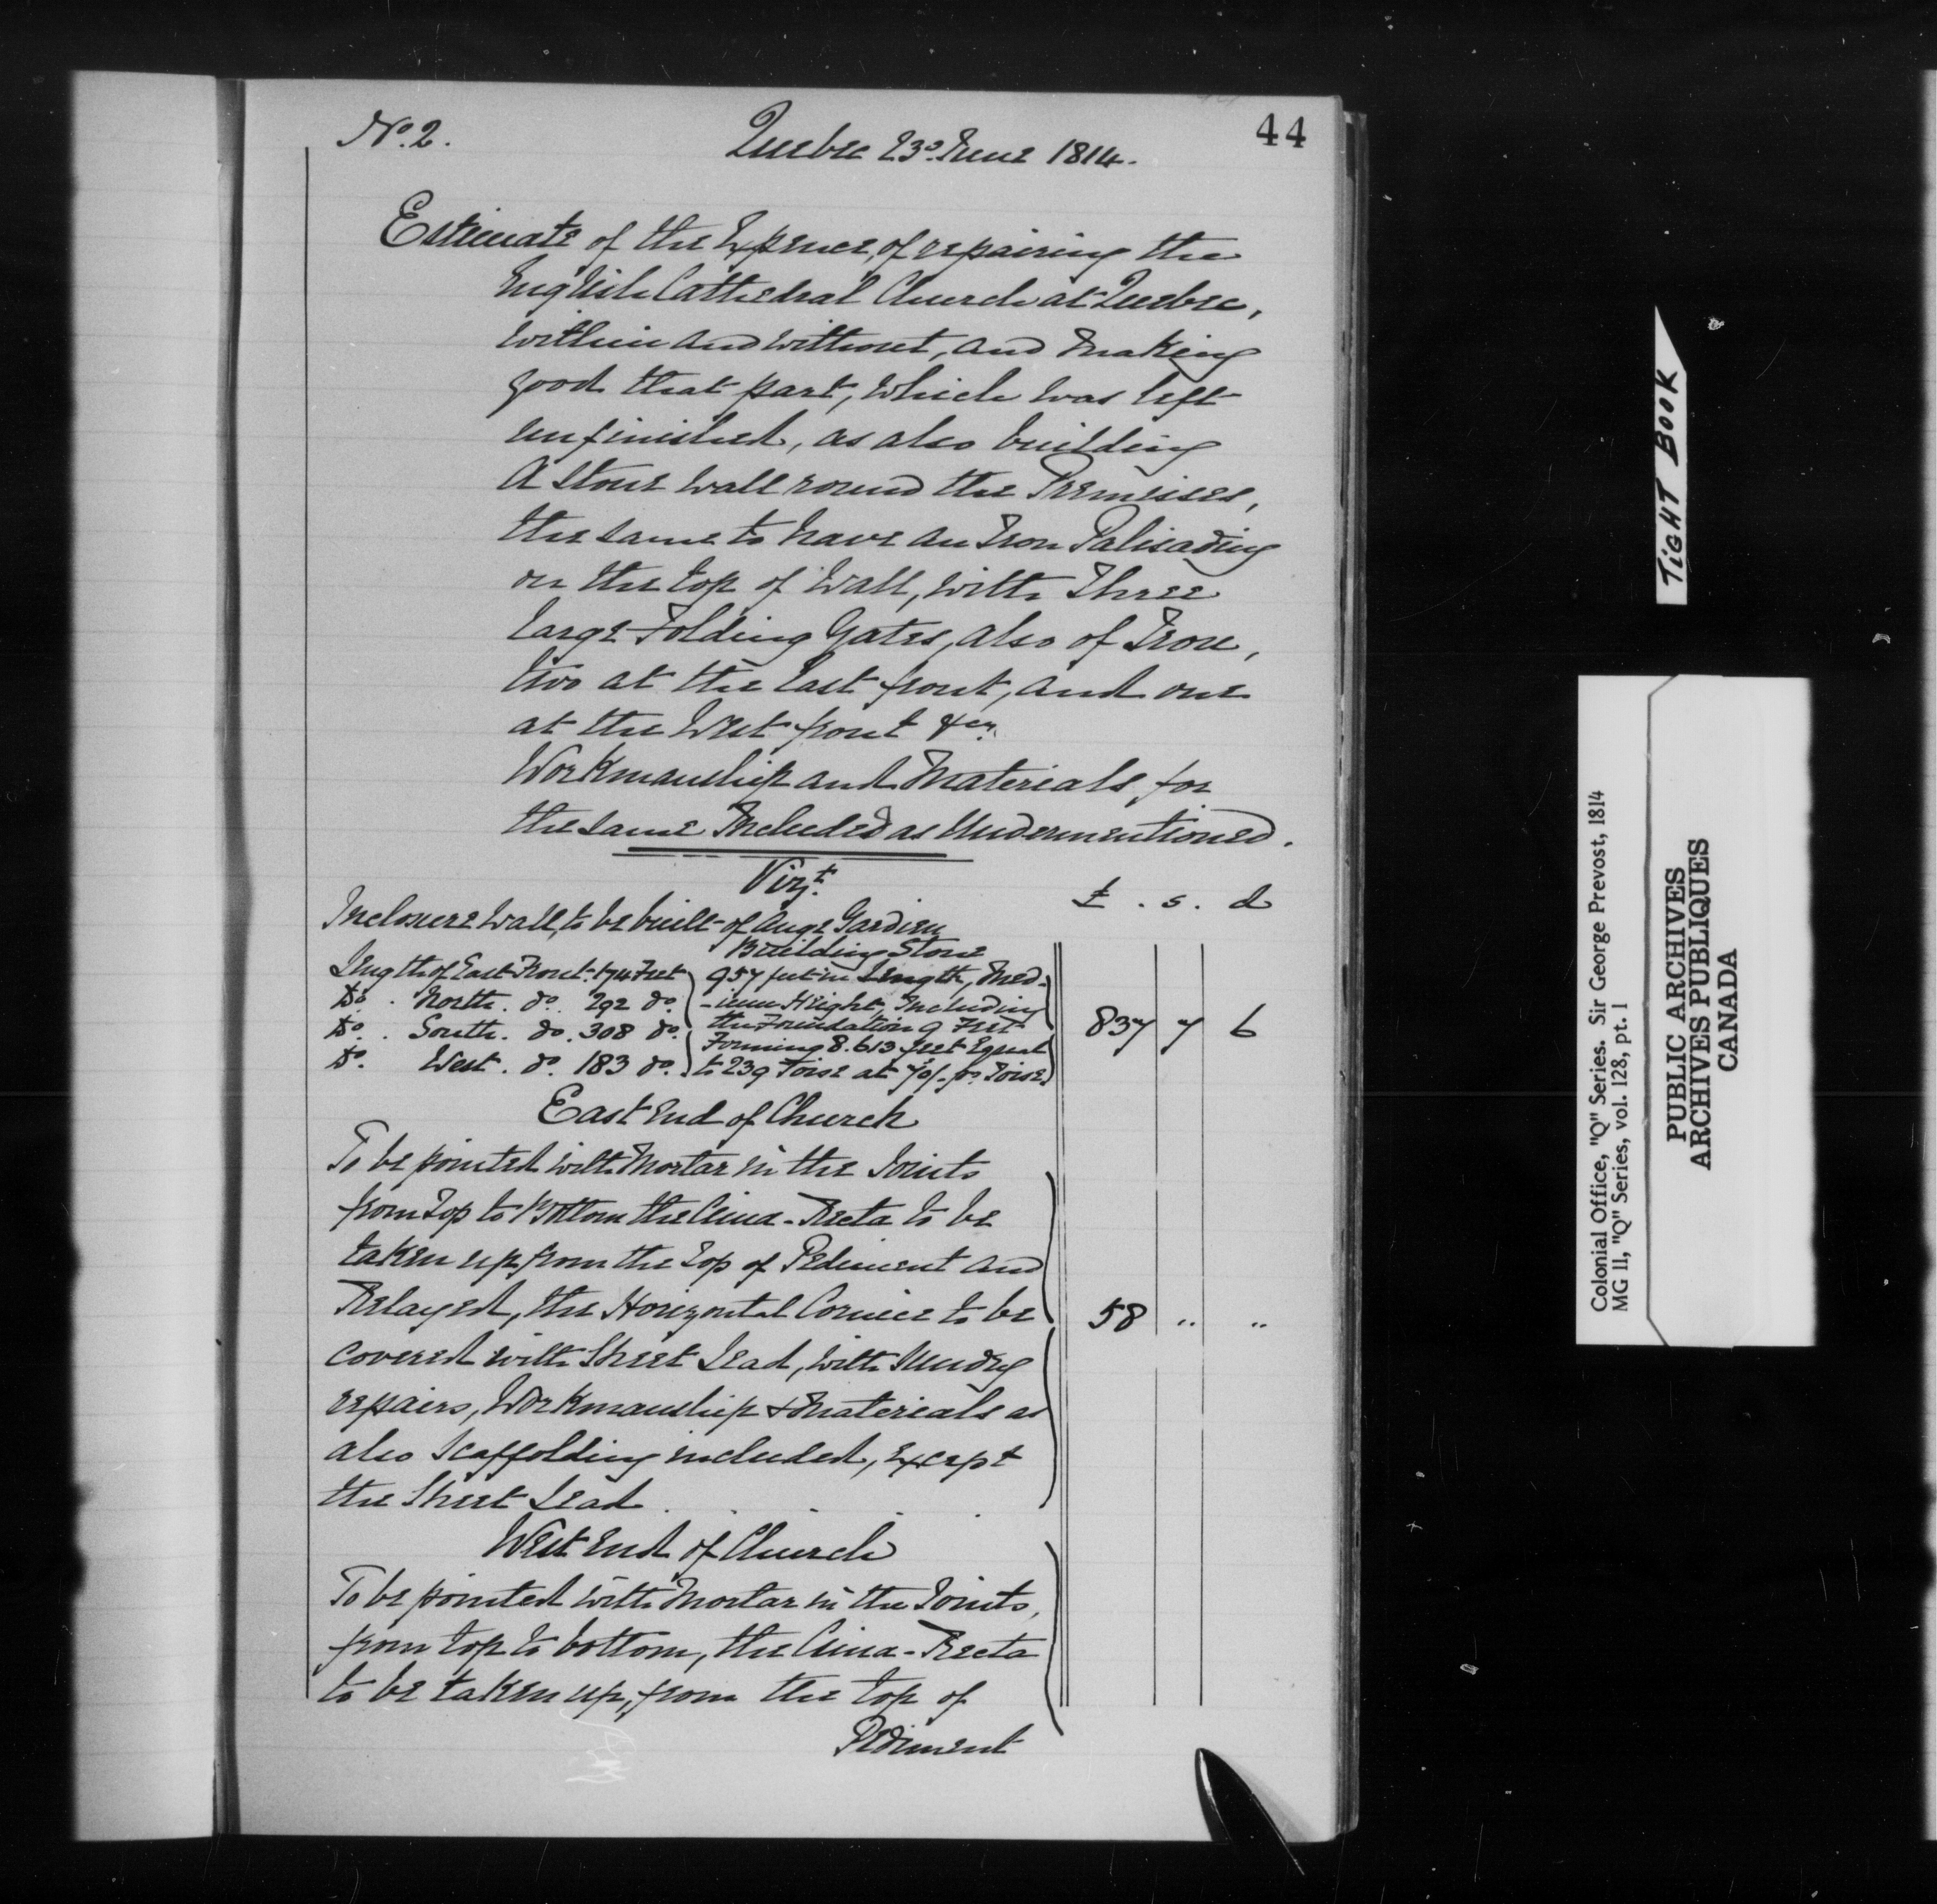 44
No. 2.
Quebec 23d June 1814.
Estimate of the Expence, of repairing the
English Cathedral Church at Quebec,
within and without, and making
good that part, which was left
unfinished, as also building
a Stone wall round the Premises,
the same to have an Iron Palisading
on the top of Wall, with Three
large Folding Gates, also of Iron,
two at the East front, and one
at the West front &ca.
Workmanship and Materials, for
the same Included as Undermentioned.
Vizt.
£ . s. d
Inclosure Wall, to be built of Ange Gardien
Building Stone
Length of East Front. 174 Feet 957 feet in Length, Med-
Do. North. do. 292 do. -ium Height, Including
the Foundation 9 Feet
Do. South. do. 308 do. Forming 8.613 feet Equal
Do. West. do. 183 do. to 239 Toise at 70/. pr. Toise.
837 7 6
East End of Church
To be pointed with Mortar in the Joints
from Top to Bottom the Cima-Recta to be
taken up from the top of Pediment and
Relayed, the Horizontal Cornice to be
58 " "
covered with Sheet Lead, with Sundry
repairs, Workmanship & Materials as
also Scaffolding included, Except
the Sheet Lead.
West End of Church
To be pointed with Mortar in the Joints,
from top to bottom, the Cima-Recta
to be taken up, from the top of
Pediment
TIGHT BOOK
Colonial Office, "Q" Series. Sir George Prevost, 1814
MG 11, "Q" Series, vol. 128, pt. 1
PUBLIC ARCHIVES
ARCHIVES PUBLIQUES
CANADA